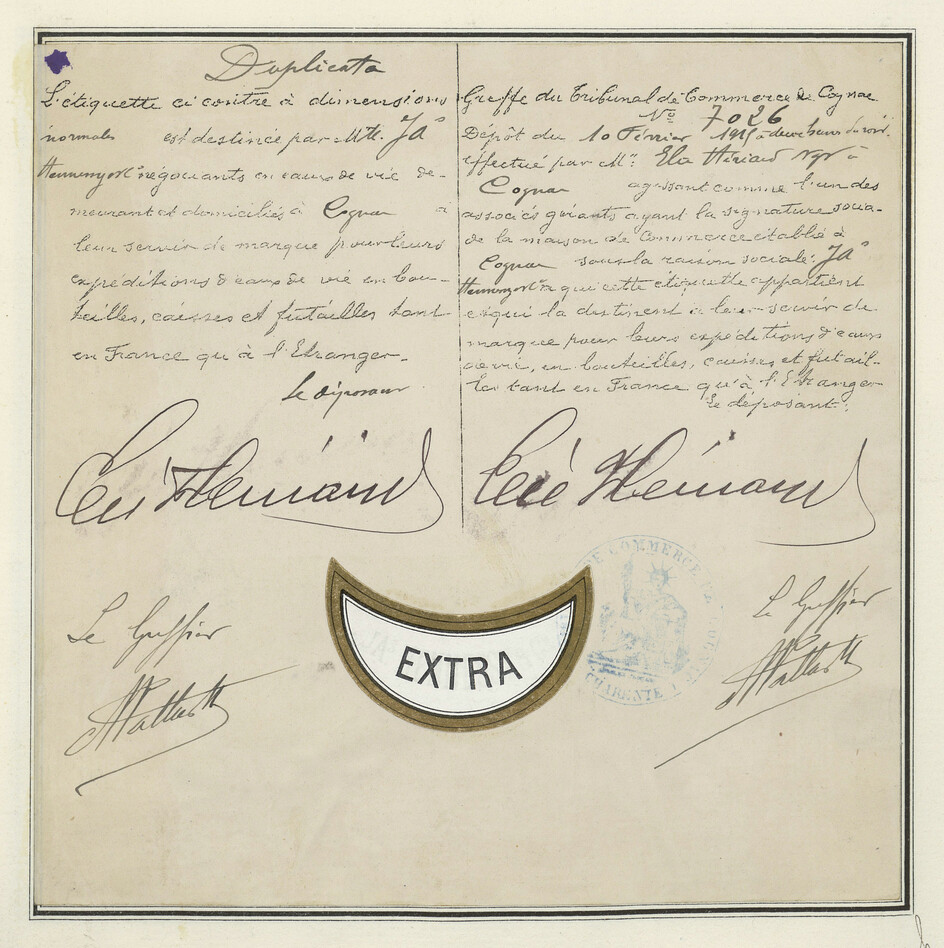 Duplicata
L'étiquette ci contre à dimensions
normales est destinée par MM. Jas
Hennessy & Co négociants en eaux de vie de-
meurant et domiciliés à Cognac à
leur servir de marque pour leurs
expéditions d'eaux de vie en bou-
teilles, caisses et futailles tant
en France qu'à l'Etranger.
Le déposant
Le Greffier
Greffe du Tribunal de Commerce de Cognac
No 7026
Dépôt du 10 Février à deux heures du soir
effectué par Mr à
Cognac agissant comme l'un des
associés gérants ayant la signature socia-
de la maison de Commerce établie à
Cognac sous la raison sociale: Jas
Hennessy & Co à qui cette étiquette appartient
et qui la destinent à leur servir de
marque pour leurs expéditions d'eaux
de vie, en bouteilles, caisses et futail-
les tant en France qu'à l'Etranger
Le déposant:
Le Greffier
EXTRA
DE COMMERCE
CHARENTE